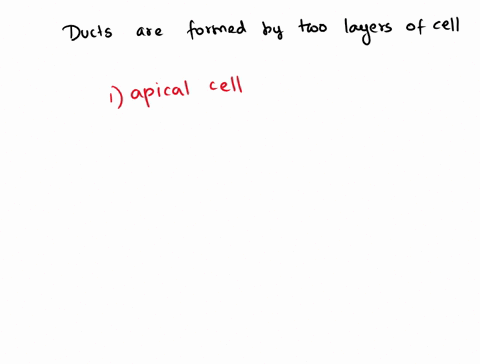 Ducts are formed by two layers of cell
1) apical cell